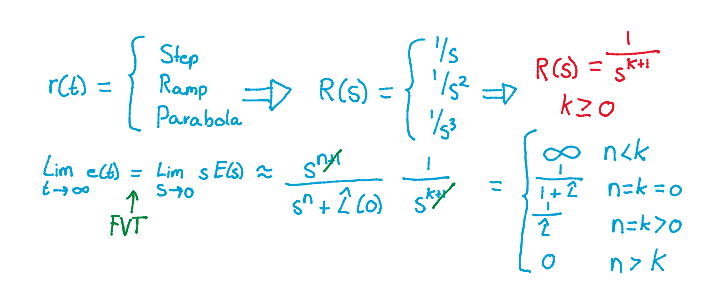 r(t) = { Step Ramp Parabola ⇒ R(s) = { 1/s 1/s² 1/s³ ⇒ R(s) = 1/s^{k+1}
k ≥ 0
Lim t→∞ e(t) = Lim s→0 sE(s) ≈ s^{n+1}/(s^n + L̂(0)) 1/s^{k+1} = { ∞ n<k
1/(1+L̂) n=k=0
1/L̂ n=k>0
0 n>k
FVT